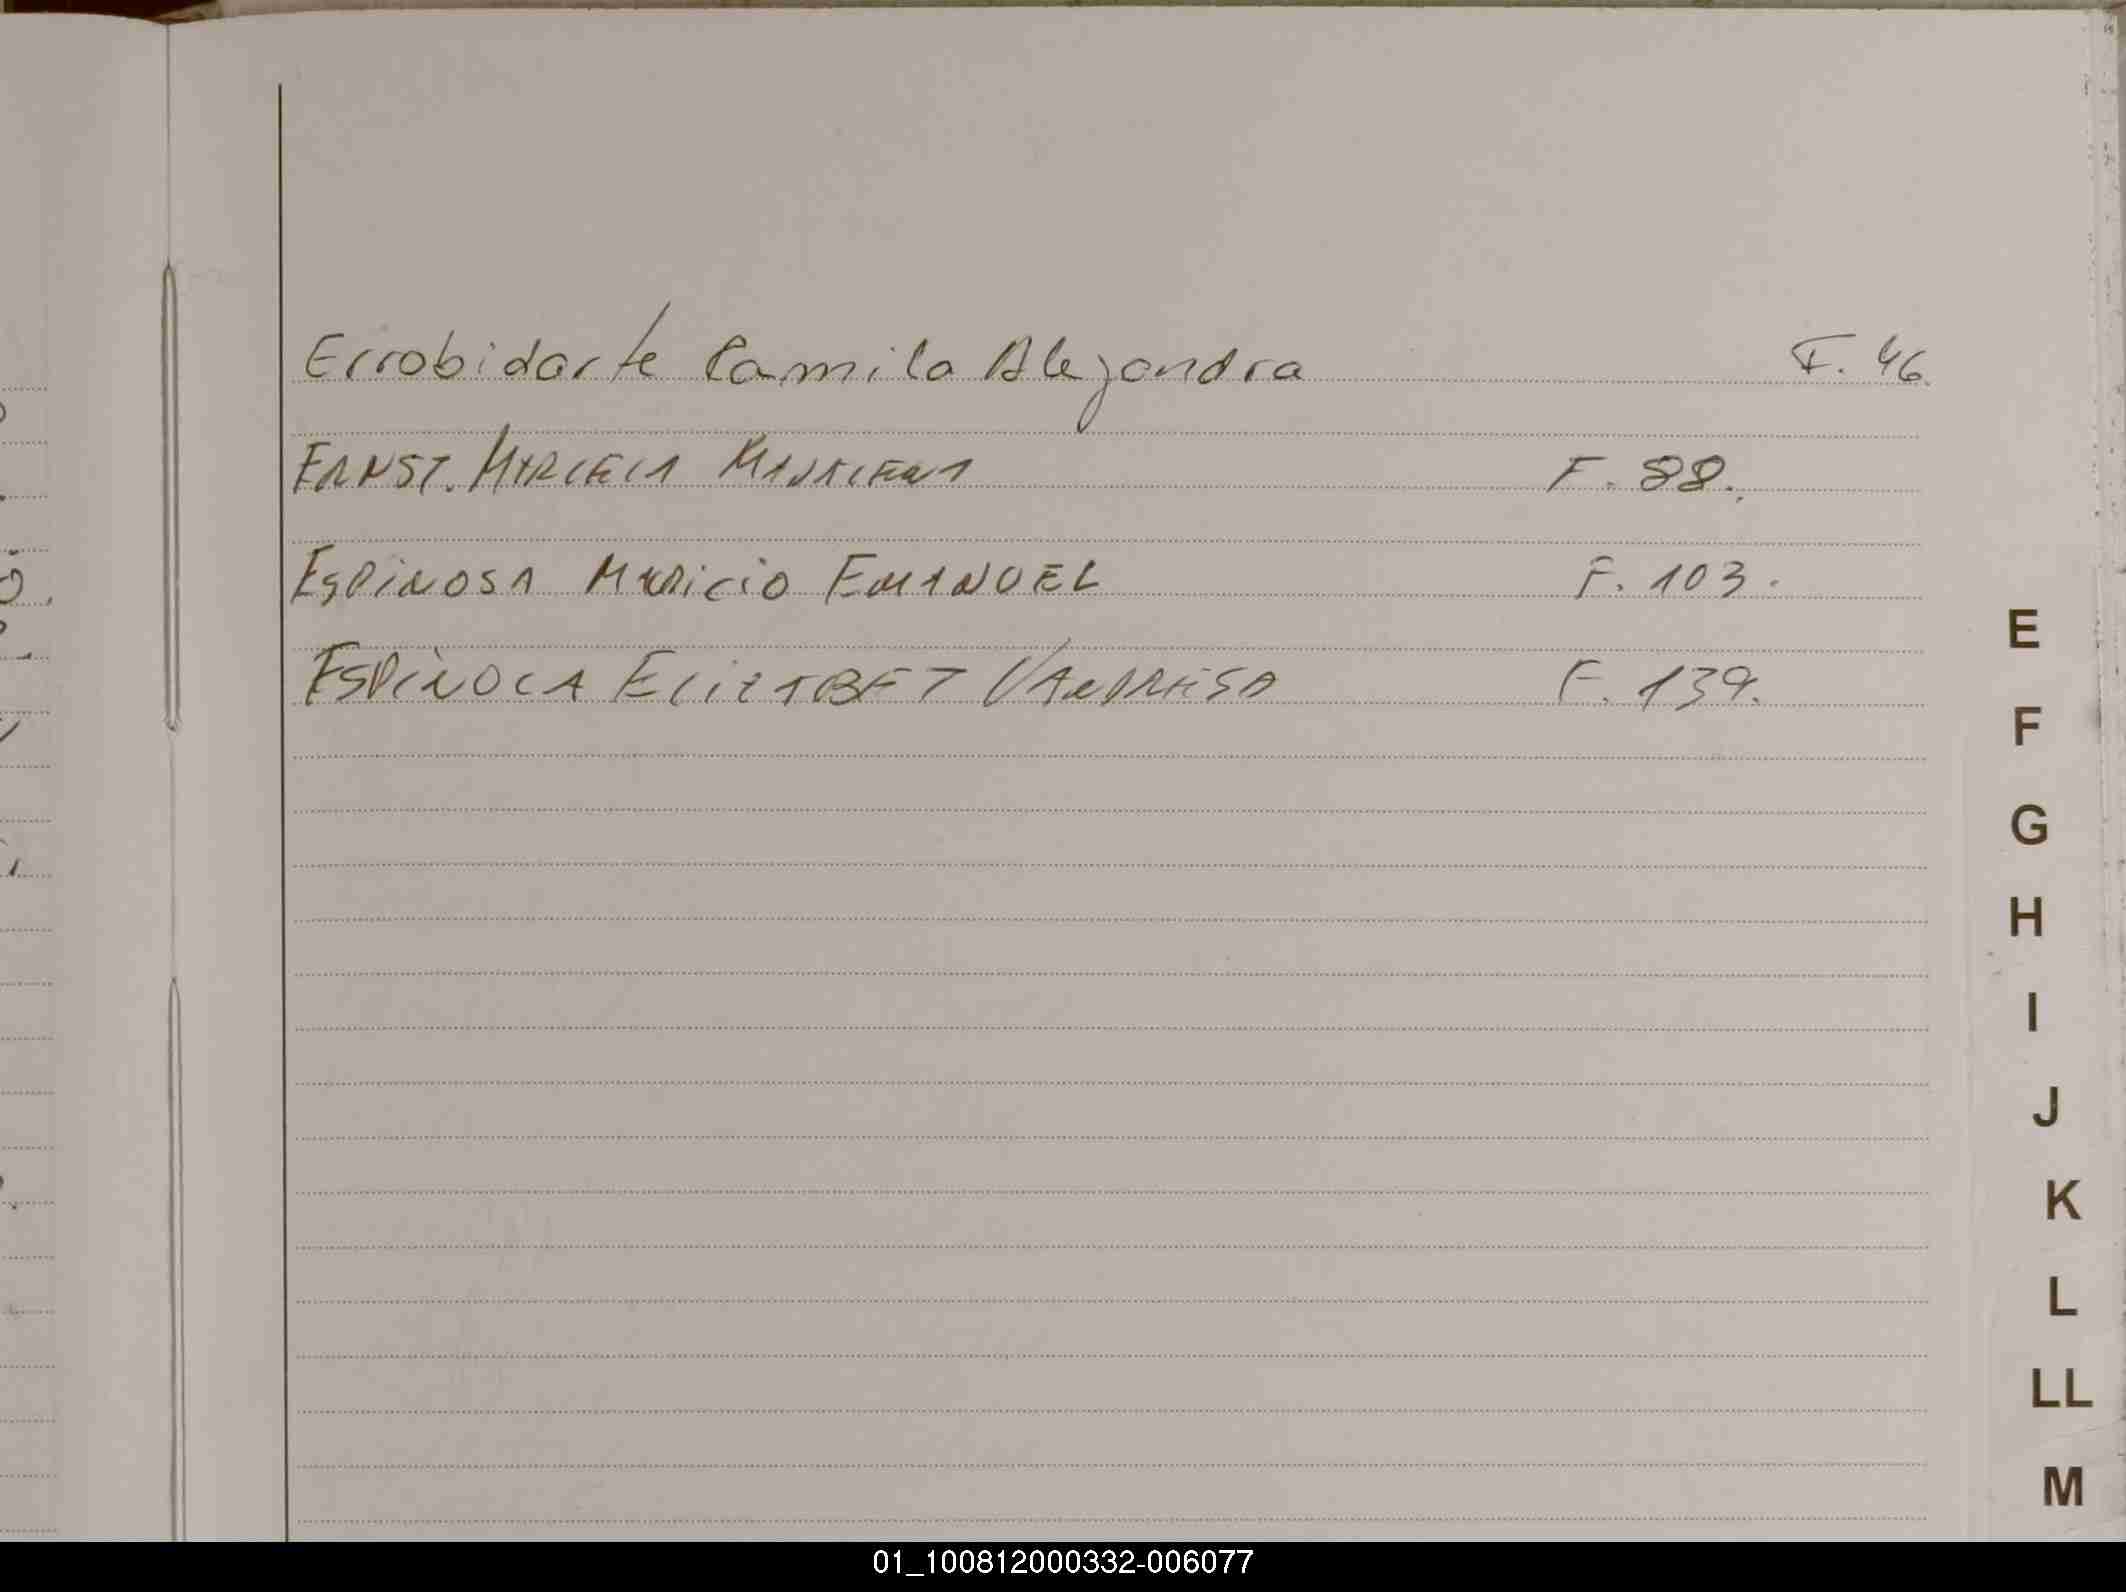 Errobidarte Camila Alejandra F. 46.
ERNST. MARCELA F. 88.
ESPINOSA MURICIO EMANUEL F. 103.
ESPINOLA ELIZABET VANDRESA F. 139.
E
F
G
H
I
J
K
L
LL
M
01_100812000332-006077